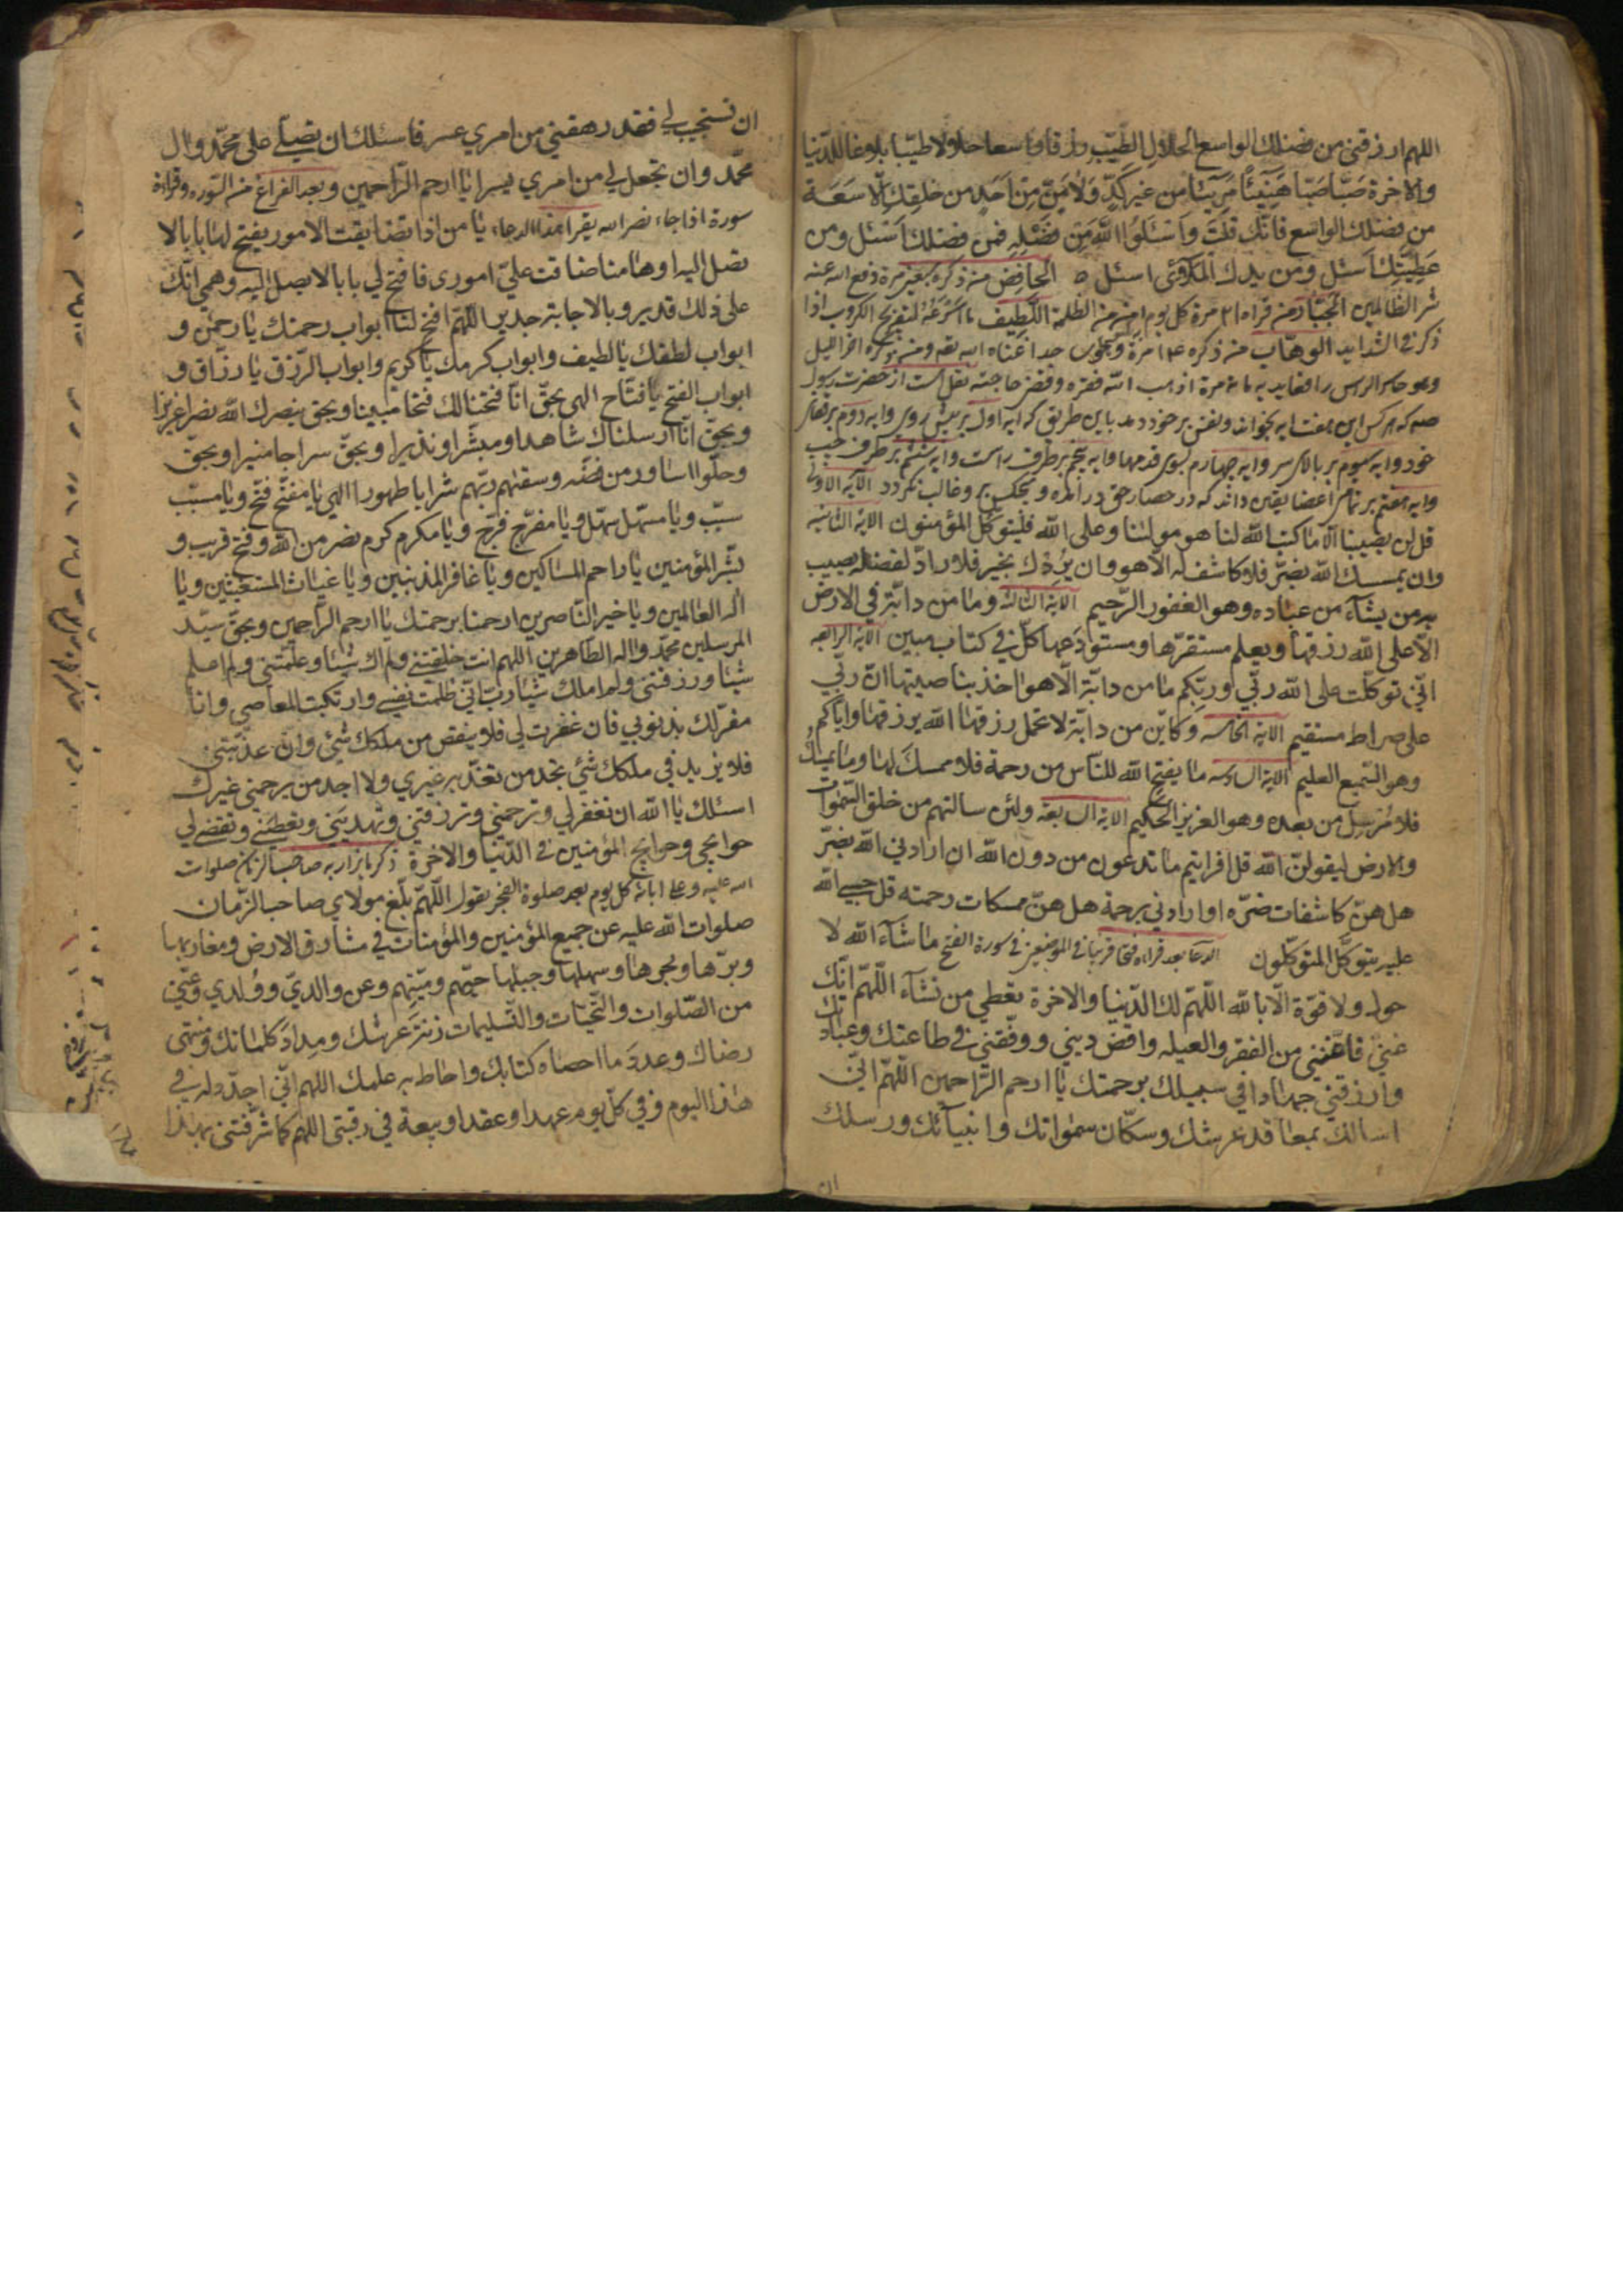 اللهم ارزقني من فضلك الواسع الحلال الطيّب رزقا واسعا حلالا طيّبا بلاغا للدّنيا
والاخرة صَبّا صَبّا هَنِيئاً مَرِيّئا من غير كَدٍّ وَلا مَنٍّ مِن اَحَدٍ من خلقِكَ الّا سَعَة
من فضلك الواسع فانّك قلتَ وَاَسْئَلُوا اللّهَ مِن فَضْلِهِ فمن فضلك اَسْئل ومن
عَطِيَّتِك اَسئل ومن يدك المَلاْئى اسئل ه الخافِض من ذكره سبعين مرة دفع الله عنه
شر الظالمين الجبّار من قراه ٢١ مرة كل يوم امن من الظلمة اللّطِيف ما اسْرَعُهُ لتفريج الكروب اذا
ذكر في الشدايد الوهّاب من ذكره ١٤ مرة اغناه الله ومن ذكره اخر الليل
حاسر الراس رافعا يديه مائة مرة اذهب الله فقره وقضى حاجته نقل است از حضرت رسول
صه كه هركس اين هفت ايه بخواند ونفس بر خود دمد باين طريق كه ايه اول بر پيش روى وايه دوم بر قفاى
خود وايه سيوم بر بالاى سر وايه چهارم بسوى قدمها وايه پنجم بر طرف راست وايه ششم بر طرف چپ
وايه هفتم بر تمام اعضا يقين داند كه در حصار حق در امده وهيچكس بر او غالب نكردد الآية الاولى
قل لن يصيبنا الّا ما كتب اللّه لنا هو مولٰنا وعلى اللّه فليتوكّل المؤمنون الاية الثانية
وان يمسسك اللّه بضرّ فلا كاشف له الّا هو وان يُرِدْك بخير فلا رادّ لفضله يصيب
به من يشاء من عباده وهو الغفور الرّحيم الاية الثالثة وما من دابّة في الارض
الّا على اللّه رزقها ويعلم مستقرّها ومستودَعها كلّ في كتاب مبين الاية الرابعة
انّي توكّلت على اللّه ربّي وربّكم ما من دابّة الّا هو اخذ بناصيتها انّ ربّي
على صراط مستقيم الاية الخامسة وكايّن من دابّة لا تحمل رزقها اللّه يرزقها وايّاكم
وهو السّميع العليم الاية السادسة ما يفتح اللّه للنّاس من رحمة فلا ممسكَ لها وما يمسك
فلا مُرسِلَ من بعده وهو العزيز الحكيم الاية السابعة ولئن سالتهم من خلق السّمٰوات
والارض ليقولنّ اللّه قل افرايتم ما تدعون من دون اللّه ان ارادني اللّه بضرّ
هل هنّ كاشفات ضرّه او ارادني برحمة هل هنّ ممسكات رحمته قل حسبي اللّه
عليه يتوكّل المتوكّلون الدعا بعد قراءة فتحا قريبا في الموضعين في سورة الفتح ما شاء اللّه لا
حول ولا قوّة الّا باللّه اللّهمّ لك الدّنيا والاخرة تعطي من تشاء اللّهمّ انّك
غنيّ فاغنني من الفقر والعيلة واقض ديني ووفّقني في طاعتك وعبادتك
وارزقني جهادا في سبيلك برحمتك يا ارحم الرّاحمين اللّهمّ انّي
اسالك بمعاقد عرشك وسكّان سمٰواتك وانبيائك ورسلك
ان
ان تستجيب لي فقد رهقني من امري عسر فاسئلك ان تصلّي على محمّد وال
محمّد وان تجعل لي من امري يسرا يا ارحم الرّاحمين وبعد الفراغ من السّورة وقراءة
سورة اذا جاء نصر الله يقرا هذا الدعاء يا من اذا تضايقت الامور يفتح لها بابا لا
تصل اليه اوهامنا ضاقت عليّ اموري فافتح لي بابا لا يصل اليه وهمي انّك
على ذلك قدير وبالاجابة جدير اللّهمّ افتح لنا ابواب رحمتك يا رحمٰن و
ابواب لطفك يا لطيف وابواب كرمك يا كريم وابواب الرّزق يا رزّاق و
ابواب الفتح يا فتّاح الهي بحقّ انّا فتحنا لك فتحا مبينا وبحق ينصرك اللّه نصرا عزيزا
وبحقّ انّا ارسلناك شاهدا ومبشّرا ونذيرا وبحقّ سراجا منيرا وبحقّ
وحلّوا اساور من فضّة وسقٰهم ربّهم شرابا طهورا الهي يا مفتّح فتّح ويا مسبّب
سبّب ويا مسهّل سهّل ويا مفرّج فرّج ويا مكرم كرم نصر من اللّه وفتح قريب و
بشّر المؤمنين يا راحم المساكين ويا غافر المذنبين ويا غياث المستغيثين ويا
اله العالمين ويا خير النّاصرين ارحمنا برحمتك يا ارحم الرّاحمين وبحقّ سيّد
المرسلين محمّد واله الطّاهرين اللهم انت خلقتني ولم اك شيئا وعلّمتني ولم اعلم
شيئا ورزقتني ولم املك شيئا ربّ انّي ظلمت نفسي وارتكبت المعاصي وانا
مقرّ لك بذنوبي فان غفرت لي فلا ينقص من ملكك شئ وان عذّبتني
فلا يزيد في ملكك شئ تجد من تعذّبه غيري ولا اجد من يرحمني غيرك
اسئلك يا اللّه ان تغفر لي وترحمني وترزقني وتهديني وتعطيني وتقضي لي
حوايجي وحوايج المؤمنين في الدّنيا والاخرة ذكر ما يزار به صاحب الزمان صلوات
الله عليه وعلى ابائه كل يوم بعد صلوة الفجر يقول اللّهمّ بلّغ مولاي صاحب الزّمان
صلوات اللّه عليه عن جميع المؤمنين والمؤمنات في مشارق الارض ومغاربها
وبرّها وبحرها وسهلها وجبلها حيّهم وميّتهم وعن والديّ وولدي وعنّي
من الصّلوات والتّحيّات والتّسليمات زنةَ عرشك ومِدادَ كلماتك ومنتهى
رضاك وعددَ ما احصاه كتابك واحاط به علمك اللهم انّي اجدّد له في
هٰذا اليوم وفي كلّ يوم عهدا وعقدا وبيعة في رقبتي اللهم كما شرّفتني بهذا